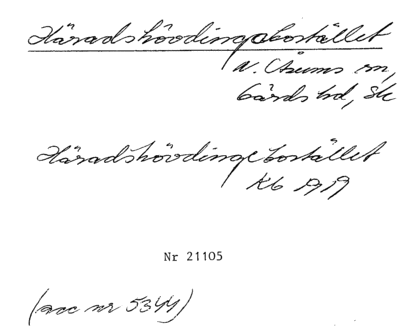 Häradshövdingebostället
N. Åsums sn,
Gärds hd, Sk
Häradshövdingebostället
Kb 1919
Nr 21105
(acc nr 5344)